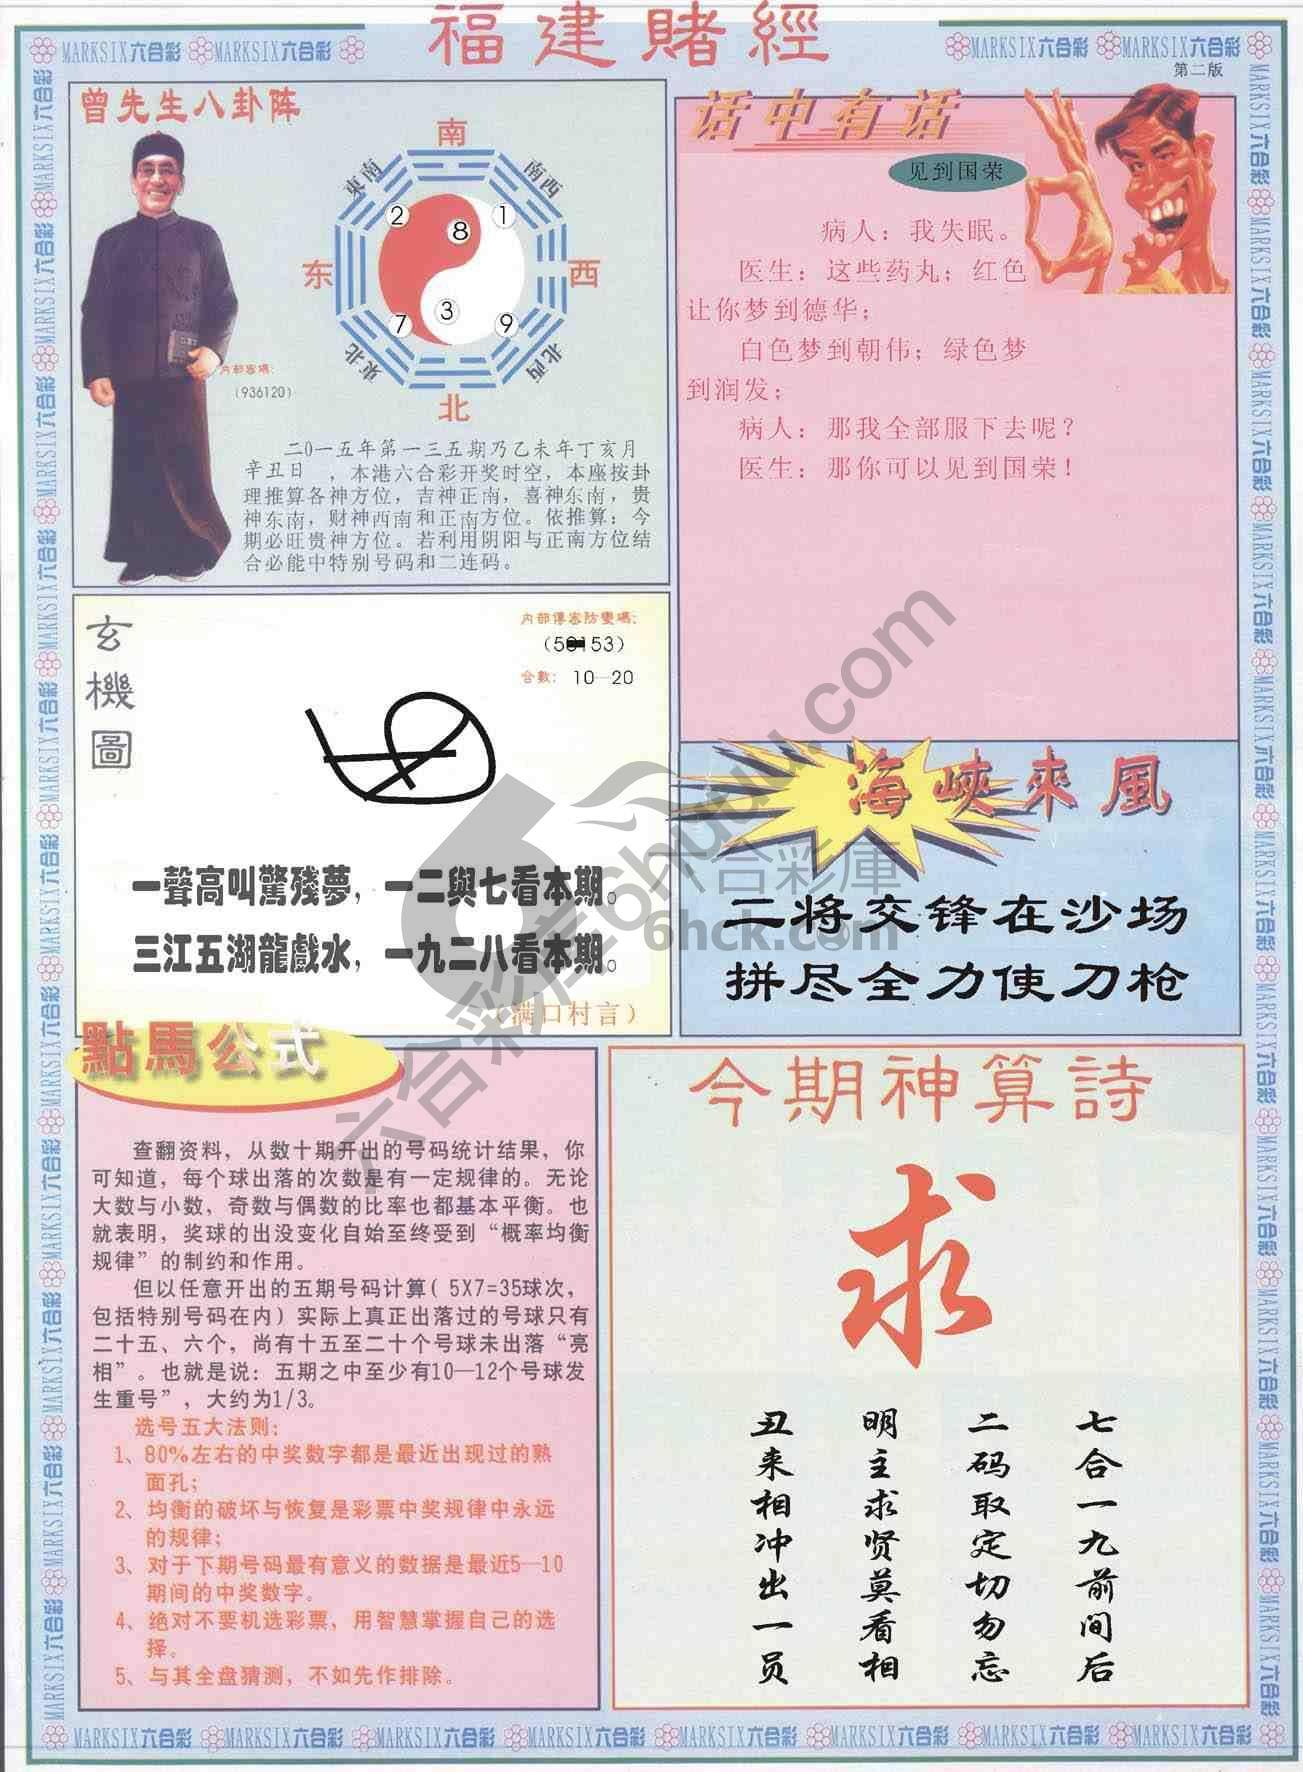 福建賭經
MARKSIX六合彩 MARKSIX六合彩
MARKSIX六合彩 MARKSIX六合彩
第二版
曾先生八卦阵
南
東南
南西
2
8
1
东
西
7
3
9
東北
北西
北
内部密碼:
(936120)
二0一五年第一三五期乃乙未年丁亥月
辛丑日 ,本港六合彩开奖时空,本座按卦
理推算各神方位,吉神正南,喜神东南,贵
神东南,财神西南和正南方位。依推算:今
期必旺贵神方位。若利用阴阳与正南方位结
合必能中特别号码和二连码。
话中有话
见到国荣
病人:我失眠。
医生:这些药丸;红色
让你梦到德华;
白色梦到朝伟;绿色梦
到润发;
病人:那我全部服下去呢?
医生:那你可以见到国荣!
玄機圖
内部傳密防變碼:
合數: 10—20
一聲高叫驚殘夢,一二與七看本期。
三江五湖龍戲水,一九二八看本期。
(满口村言)
海峽來風
二将交锋在沙场
拼尽全力使刀枪
點馬公式
查翻资料,从数十期开出的号码统计结果,你
可知道,每个球出落的次数是有一定规律的。无论
大数与小数,奇数与偶数的比率也都基本平衡。也
就表明,奖球的出没变化自始至终受到“概率均衡
规律”的制约和作用。
但以任意开出的五期号码计算( 5X7=35球次,
包括特别号码在内)实际上真正出落过的号球只有
二十五、六个,尚有十五至二十个号球未出落“亮
相”。也就是说:五期之中至少有10—12个号球发
生重号”,大约为1/3。
选号五大法则:
1、80%左右的中奖数字都是最近出现过的熟
面孔;
2、均衡的破坏与恢复是彩票中奖规律中永远
的规律;
3、对于下期号码最有意义的数据是最近5—10
期间的中奖数字。
4、绝对不要机选彩票,用智慧掌握自己的选
择。
5、与其全盘猜测,不如先作排除。
今期神算詩
求
七合一九前间后
二码取定切勿忘
明主求贤莫看相
丑来相冲出一员
六合彩庫
6hck.com
MARKSIX六合彩 MARKSIX六合彩 MARKSIX六合彩 MARKSIX六合彩 MARKSIX六合彩 MARKSIX六合彩 MARKSIX六合彩 MARKSIX六合彩